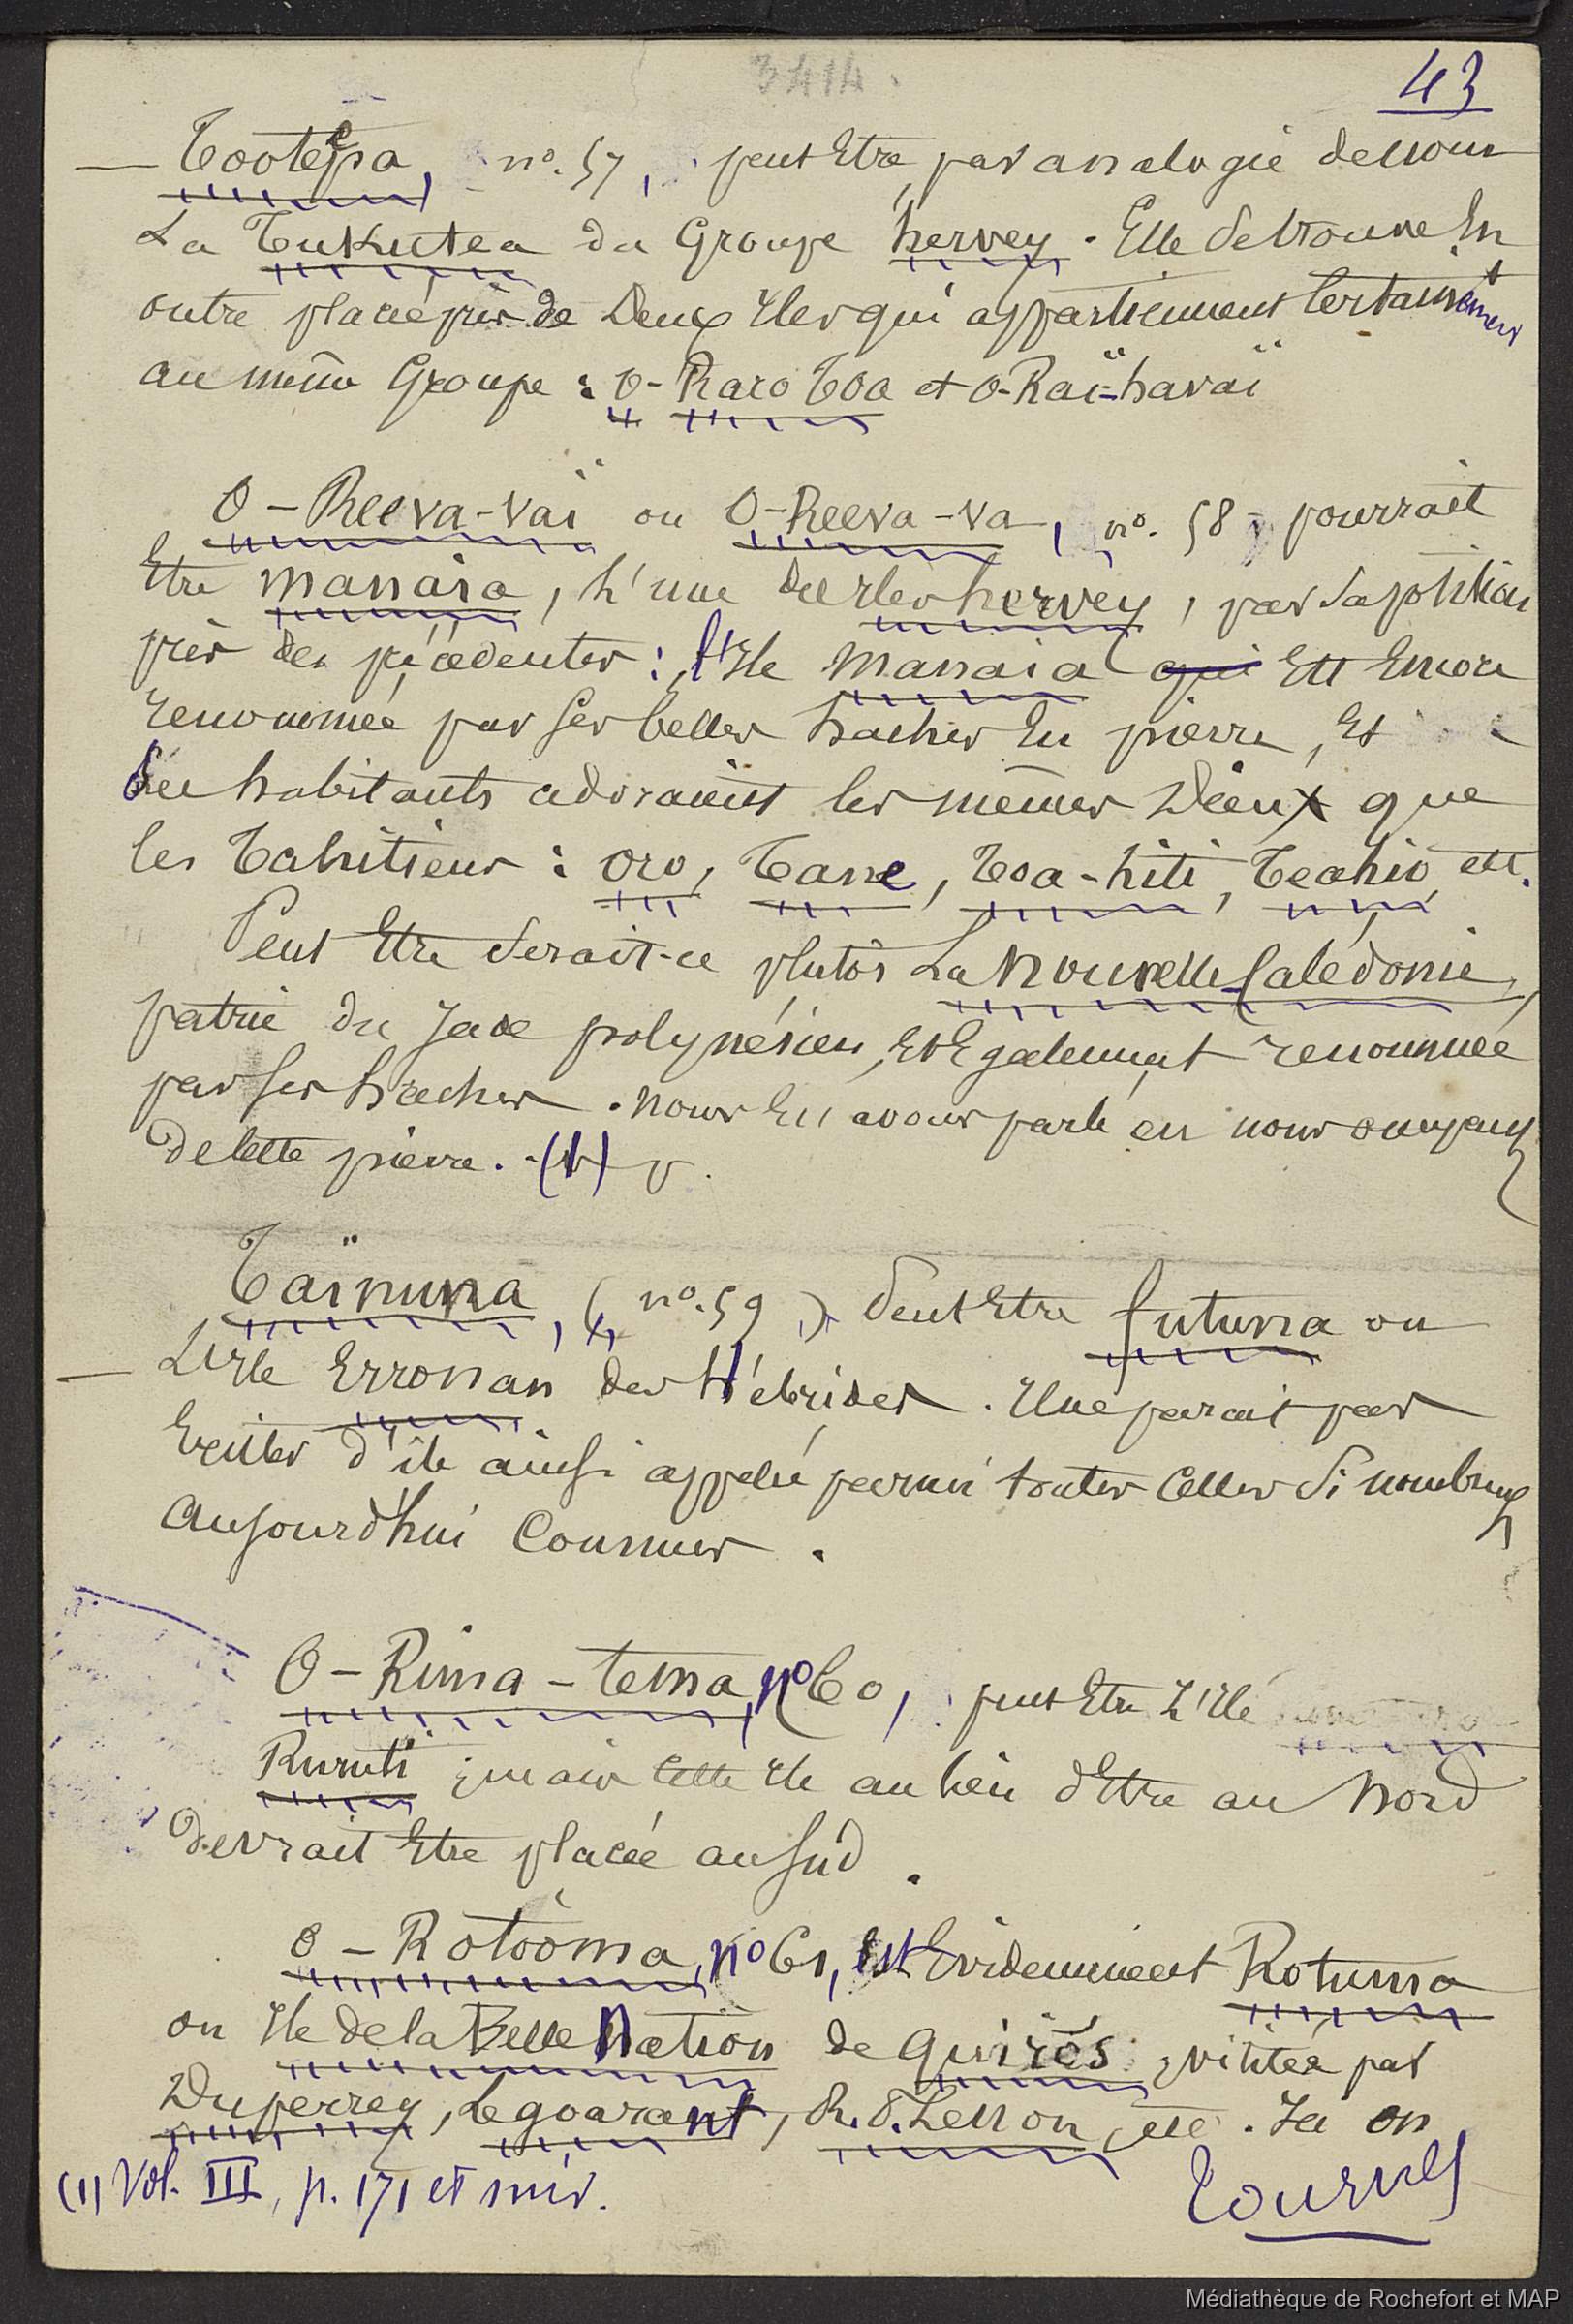 3414.
43
— Tootepa, n°. 57, peut Etre, par analogie de nom
La Tukutea du Groupe hervey. Elle se trouve En
outre placée près de Deux Iles qui appartiennent Certainement
au même Groupe : O-Raro Toa et O-Raï-havaï
O-Reeva-vaï ou O-Reeva-va, n°. 58, pourrait
Etre Manaia, L'une des Iles hervey, par sa position
près des précédentes : L'Ile Manaia qui Est Encore
renommée par ses belles haches En pierre, Et
ses habitants adoraient les mêmes Dieux que
les Tahitiens : Oro, Tane, Toa-hiti, Teahio, etc.
Peut Etre serait-ce plutôt La Nouvelle Calédonie,
patrie du Jade polynésien, Et Egalement renommée
par ses haches. Nous En avons parlé en nous occupant
de Cette pierre. (1)
Taïnuna, (n°. 59) Peut Etre futuna ou
— L'Ile Erronan des Hébrides. Il ne parait pas
Exister d'île ainsi appelée parmi toutes Celles Si nombreuses
Aujourd'hui Connues.
O-Rima-tema, n° 60, peut Etre L'Ile
Rurutu ; mais Cette Ile au lieu d'Etre au Nord
devrait Etre placée au Sud.
O-Rotooma, n° 61, Est Evidemment Rotuma
ou Ile de la Belle Nation de Quiros, visitée par
Duperrey, Legoarant, R. P. Lesson, etc. Là on
(1) Vol. III, p. 171 et suiv.
Tournez
Médiathèque de Rochefort et MAP